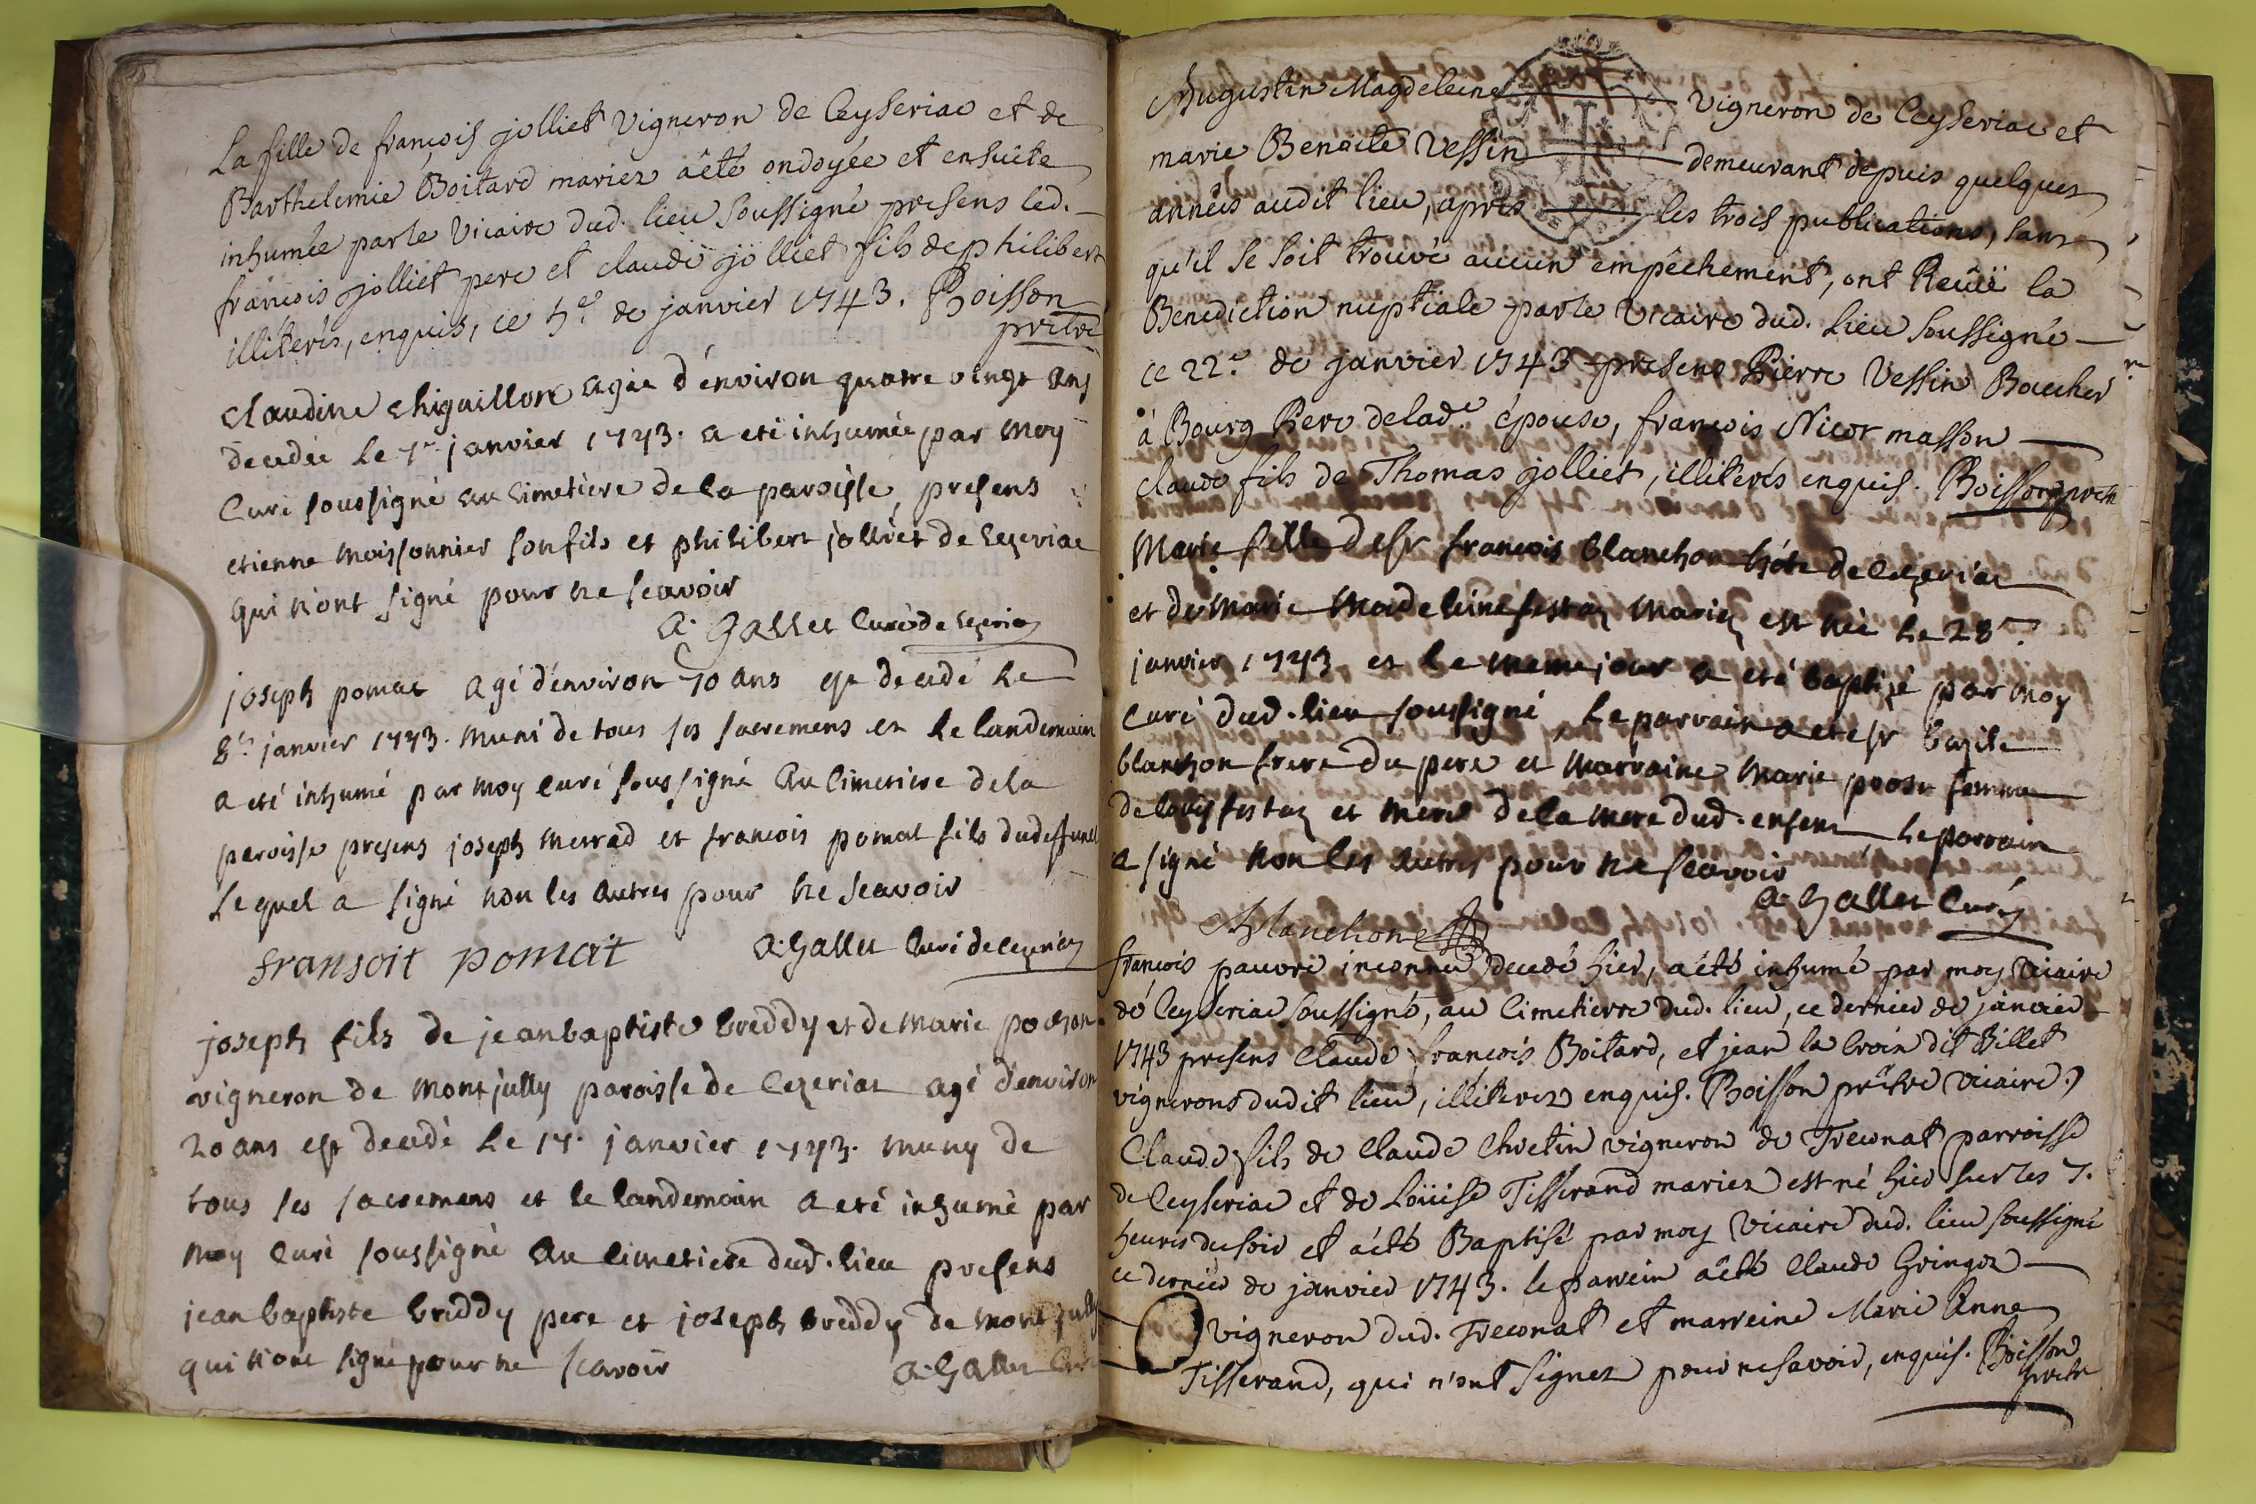 La fille de françois jolliet vigneron de Ceyseriac et de
Barthelemie Boitard mariez a êté ondoyée et ensuite
inhumée par le vicaire dud. lieu soussigné presens led.
françois jolliet pere et claude jolliet fils de philibert
illiterés, enquis, ce de janvier 1743. Boisson
prêtre
claudine chiguillon agée d'environ quatre vingt ans
decedée le janvier 1743. a eté inhumée par moy
Curé soussigné au cimetiere de la paroisse, presens
etienne moissonnier son fils et philibert jolliet de cezeriac
qui n'ont signé pour ne scavoir
a. Gallet Curé de cezeriac
joseph pomat agé d'environ 70 ans est decedé le
8e. janvier 1743. muni de tous ses sacremens et le landemain
a eté inhumé par moy curé soussigné au cimetiere de la
paroisse presens joseph merad et francois pomat fils du deffunct
lequel a signé non les autres pour ne scavoir
fransoit pomait a. Gallet Curé de cezeriac
joseph fils de jean baptiste breddy et de marie pochon
vigneron de montjully paroisse de Cezeriat agé d'environ
20 ans est decedé le janvier 1743. muny de
tous ses sacremens et le landemain a eté inhumé par
moy curé soussigné au cimetiere dud. lieu presens
jean baptiste breddy pere et joseph breddy de mont jully
qui n'ont signé pour ne scavoir a. Gallet Curé
Augustin Magdeleine vigneron de Ceyseriac et
marie Benoite Vessin demeurant depuis quelques
années audit lieu, apres les trois publications, sans
qu'il se soit trouvé aucun empêchement, ont Receüe la
Benediction nuptiale par le vicaire dud. lieu soussigné
ce 22e. de janvier 1743 presens Pierre Vessin Boucher
à Bourg Pere de lad.e épouse, françois Nicot masson
claude fils de Thomas jolliet, illiterés enquis. Boisson prêtre
Marie fille de sr francois blanchon hôte de cezeriac
et de marie madeleine festaz mariez est née le 28e
janvier 1743 et le meme jour a eté baptizé par moy
Curé dud. lieu soussigné, le parrain a eté sr bazile
blanchon frere du pere et marraine marie femme
de louis festaz et mere de la mere dud. enfent le parrain
a signé non les autres pour ne scavoir
a. Gallet Curé
Blanchon
françois pauvre inconnu decedé hier, a êté inhumé par moy vicaire
de Ceyseriac soussigné, au cimetierre dud. lieu, ce dernier de janvier
1743 presens Claude françois Boitard, et jean la croix dit Billet
vignerons dudit lieu, illiterez enquis. Boisson prêtre vicaire.
Claude fils de Claude Chretin vigneron de Treconat parroisse
de Ceyseriac et de Loüise Tisserand mariez est né hier sur les 7.
heures du soir et a êté Baptisé par moy vicaire dud. lieu soussigné
ce dernier de janvier 1743. le parrein a êté Claude Gringoz
vigneron dud. Treconat et marreine Marie Anne
Tisserand, qui n'ont signez pour ne savoir, enquis. Boisson
prêtre